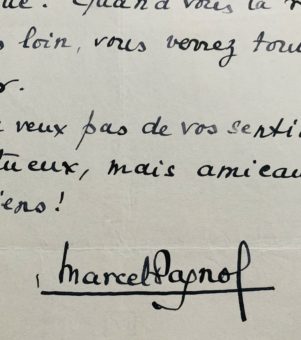 ue. Quand vous la r
s loin, vous verrez tou
r.
veux pas de vos senti
tueux, mais amicau
iens!
Marcel Pagnol